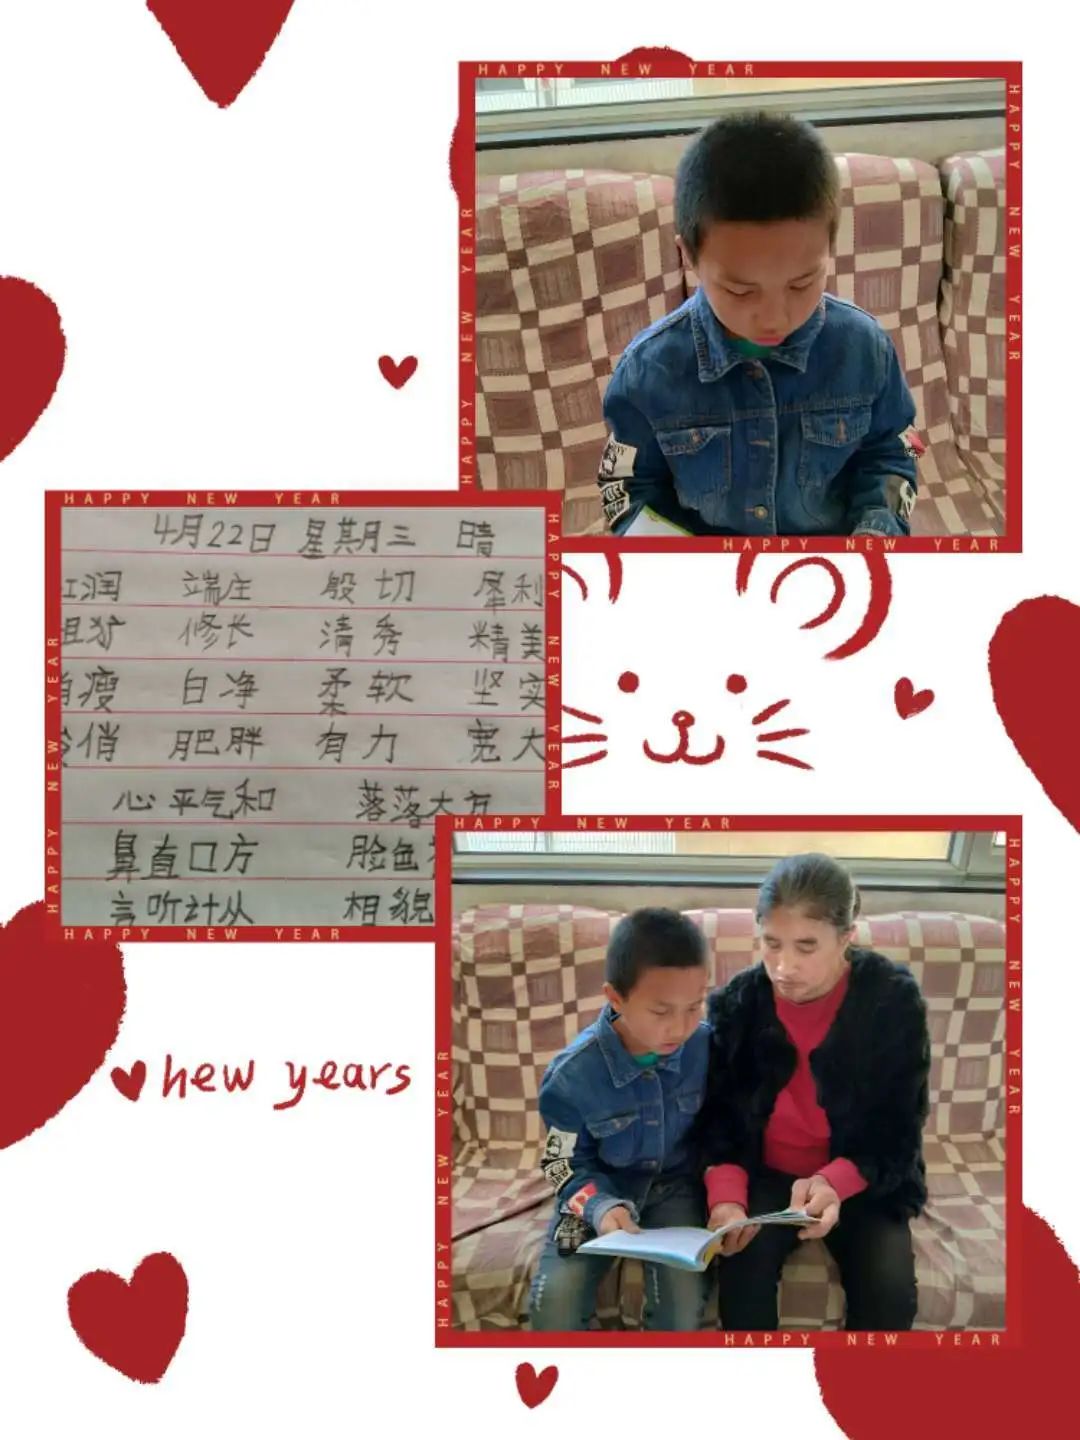 HAPPY NEW YEAR
HAPPY NEW YEAR
HAPPY NEW YEAR
HAPPY NEW YEAR
HAPPY NEW YEAR
4月22日 星期三 晴
润 端庄 殷切 犀利
犷 修长 清秀 精美
瘦 白净 柔软 坚实
俏 肥胖 有力 宽大
心平气和 落落大方
鼻直口方 脸色
言听计从 相貌
HAPPY NEW YEAR
HAPPY NEW YEAR
HAPPY NEW YEAR
HAPPY NEW YEAR
hew years
HAPPY NEW YEAR
HAPPY NEW YEAR
HAPPY NEW YEAR